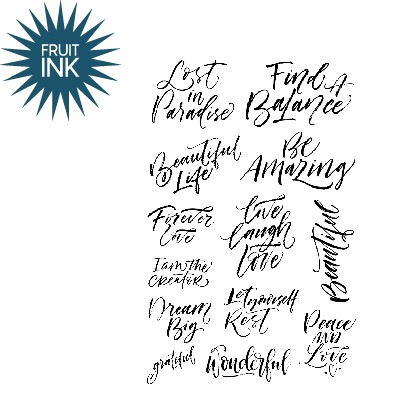 FRUIT
INK
Lost
in
Paradise
Find A
Balance
Beautiful
Life
Be
Amazing
Forever
Love
live
laugh
love
Beautiful
I am the
creator
Dream
Big
Let yourself
Rest
Peace
AND
Love
grateful
Wonderful